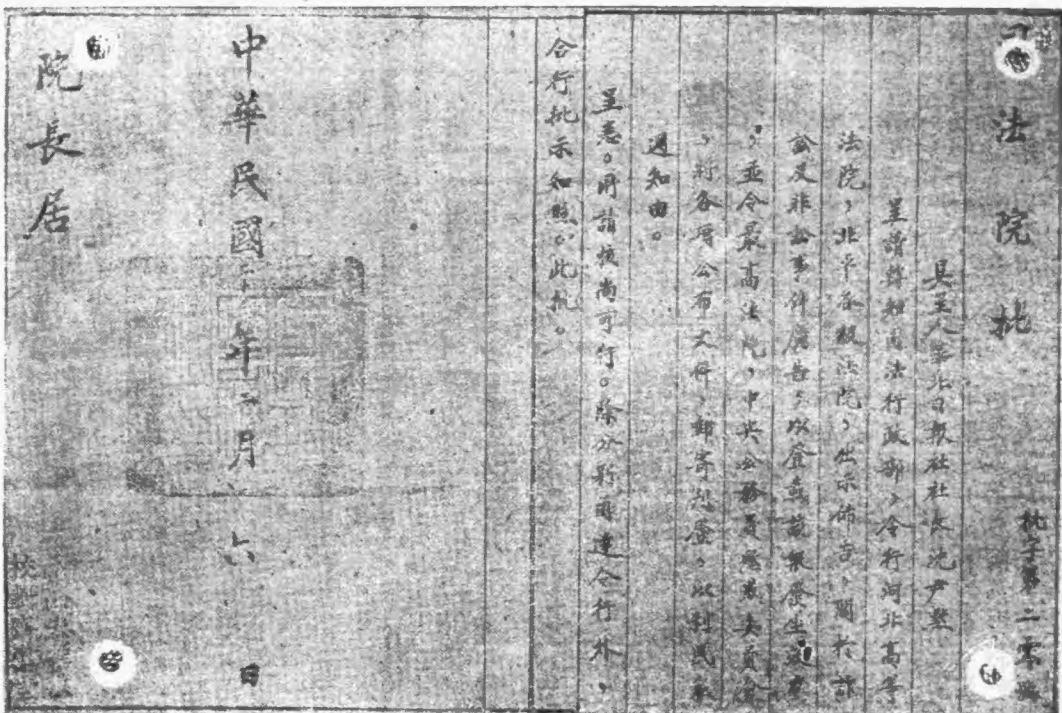 司法院批
批字第二零號
具呈人華北日報社社長沈尹默
呈請轉知司法行政部,令行河北高等
法院,北平各級法院,出示佈告,關於訴
訟及非訟事件廣告,以登載該報發生效力
,並令最高法院,中央公務員懲戒委員會
,將各項公布文件,郵寄登,以利民眾
週知由。
呈悉。所請核尚可行。除分別函達令行外,
合行批示知照。此批。
中華民國二年二月六日
院長居